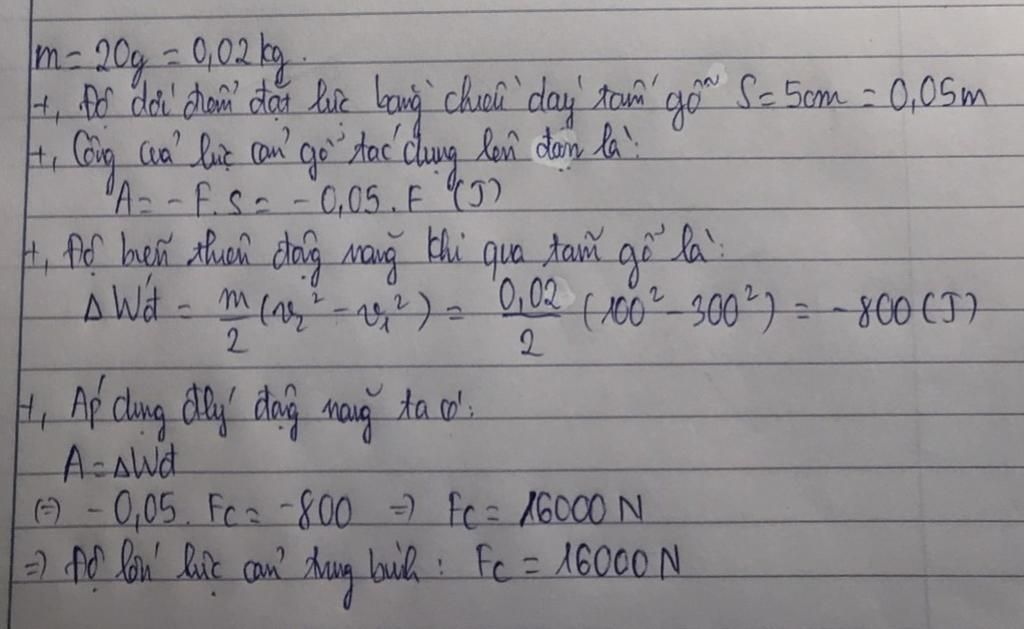 m = 20g = 0,02kg.
+, Độ dời điểm đặt lực bằng chiều dày tấm gỗ S = 5cm = 0,05m
+, Công của lực cản gỗ tác dụng lên đạn là:
A = - F.S = - 0,05.F (J)
+, Độ biến thiên động năng khi qua tấm gỗ là:
ΔWđ = m/2 (v₂² - v₁²) = 0,02/2 (100² - 300²) = -800 (J)
+, Áp dụng đlý động năng ta có:
A = ΔWđ
(=) - 0,05. Fc = -800 => Fc = 16000 N
=> Độ lớn lực cản trung bình: Fc = 16000 N